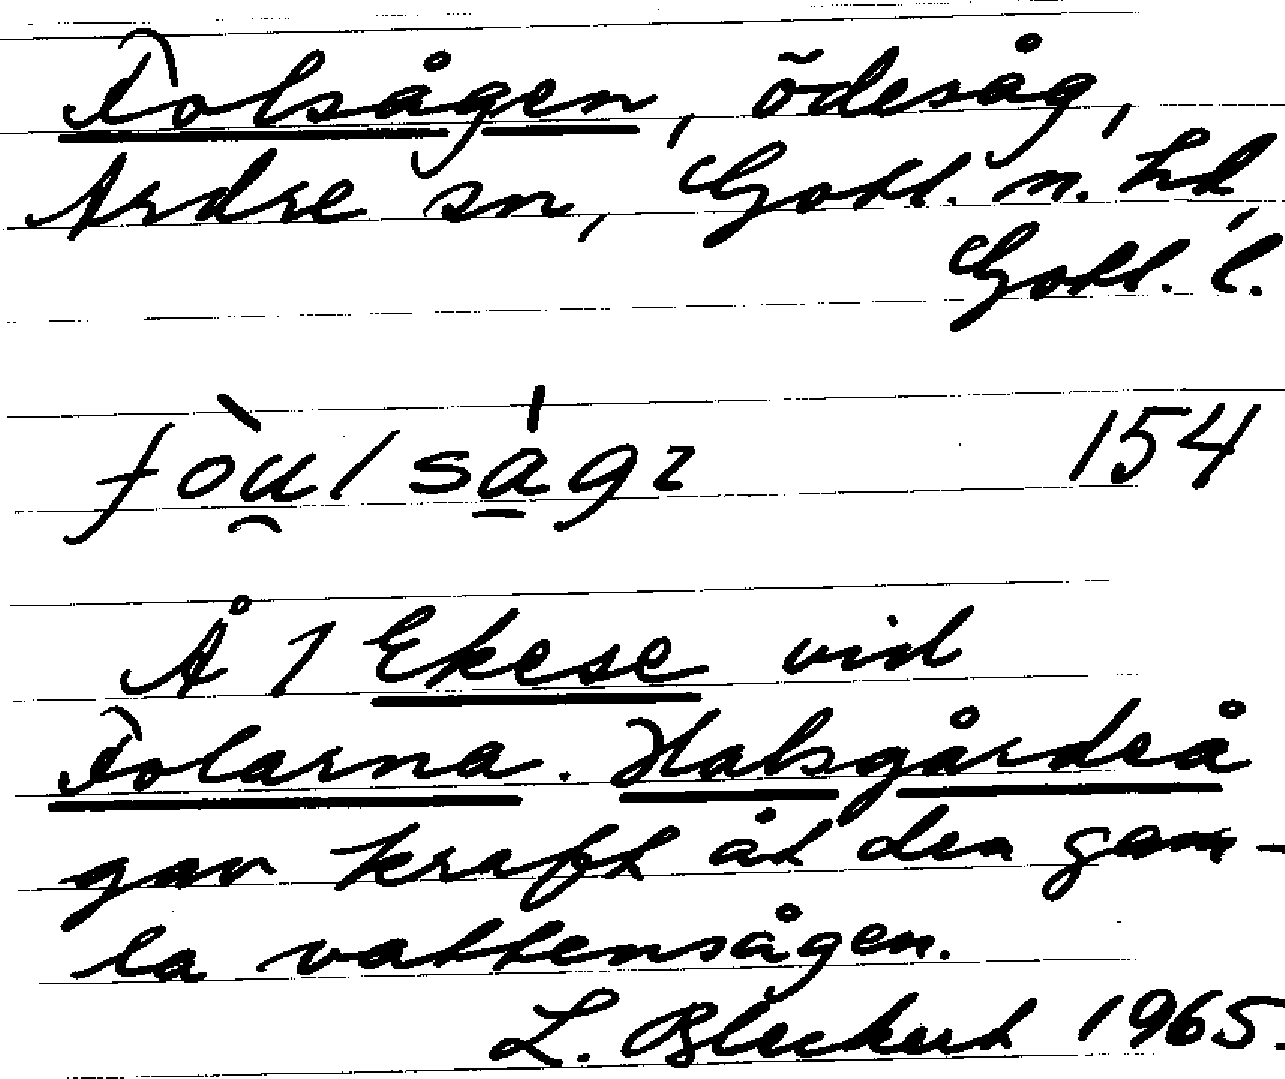 Folsågen, ödesåg,
Ardre sn, Gotl. n. hd,
Gotl. l.
fòu̯lsá̱gɪ 154
Å 1 Ekese vid
Folarna. Halsgårdså
gav kraft åt den gam-
la vattensågen.
L. Bleckert 1965.